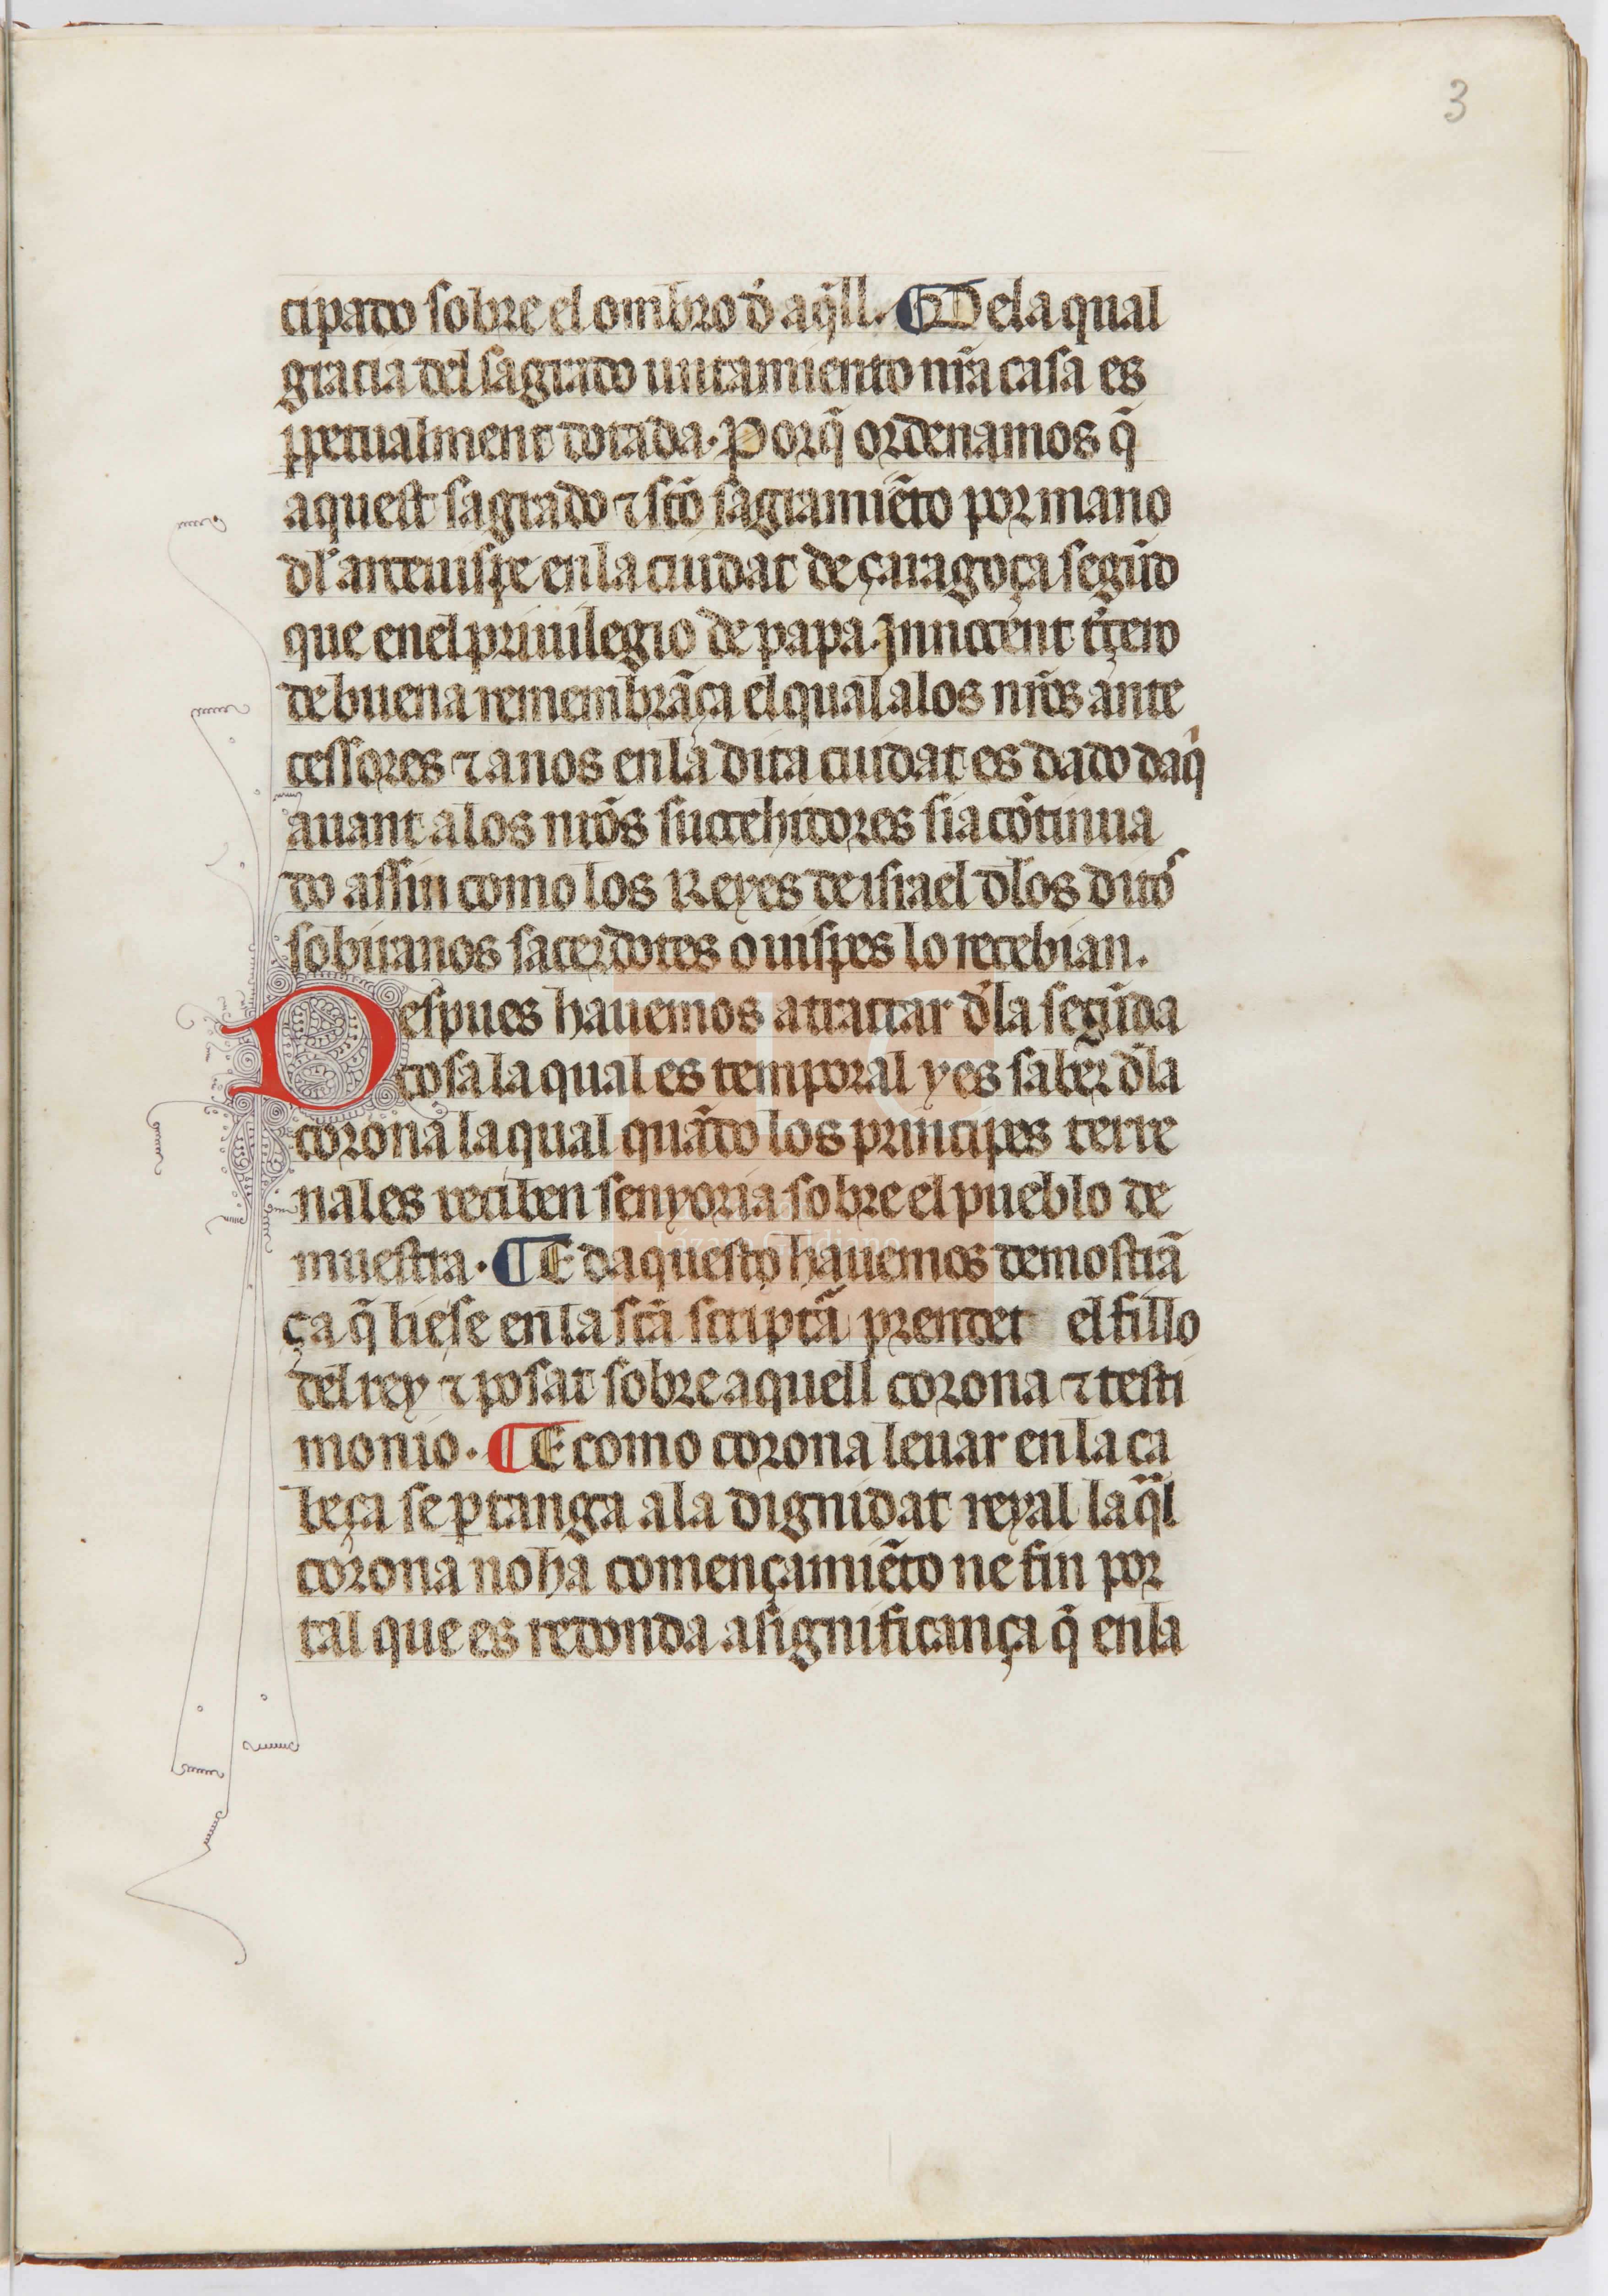 3
cipado sobre el ombro d̄ aq̄ll. ¶ De la qual
gracia del sagrado untamiento nr̄a casa es
ꝑpetualment dotada. Porq̄ ordenamos q̄
aquest sagrado ⁊ sc̄o sagramiẽto por mano
dl̄ arceuispe en la ciudat de çaragoça segũd
que en el priuilegio de papa Innocent t̄çero
de buena remembrãça el qual a los nr̄os ante
cessores ⁊ a nos en la dita ciudat es dado daq̄
auant a los nr̄os succehidores sia cõtinua
do assin como los Reyes de israel dl̄os ditos
sobiranos sacerdotes o uispes lo recebian.
Despues hauemos a tractar d̄la segũda
cosa la qual es temporal y es saber d̄la
corona la qual quãdo los principes terre
nales reciben senyoria sobre el pueblo de
muestra. ¶ E daquesto hauemos demostrã
ça q̄ liese en la sc̄a scriptã prendet el fillo
del rey ⁊ posat sobre aquell corona ⁊ testi
monio. ¶ E como corona leuar en la ca
beça se ꝑtanga a la dignidat reyal la q̄l
corona no ha començamiẽto ne fin por
tal que es redonda a significança q̄ en la
Lázaro Galdiano